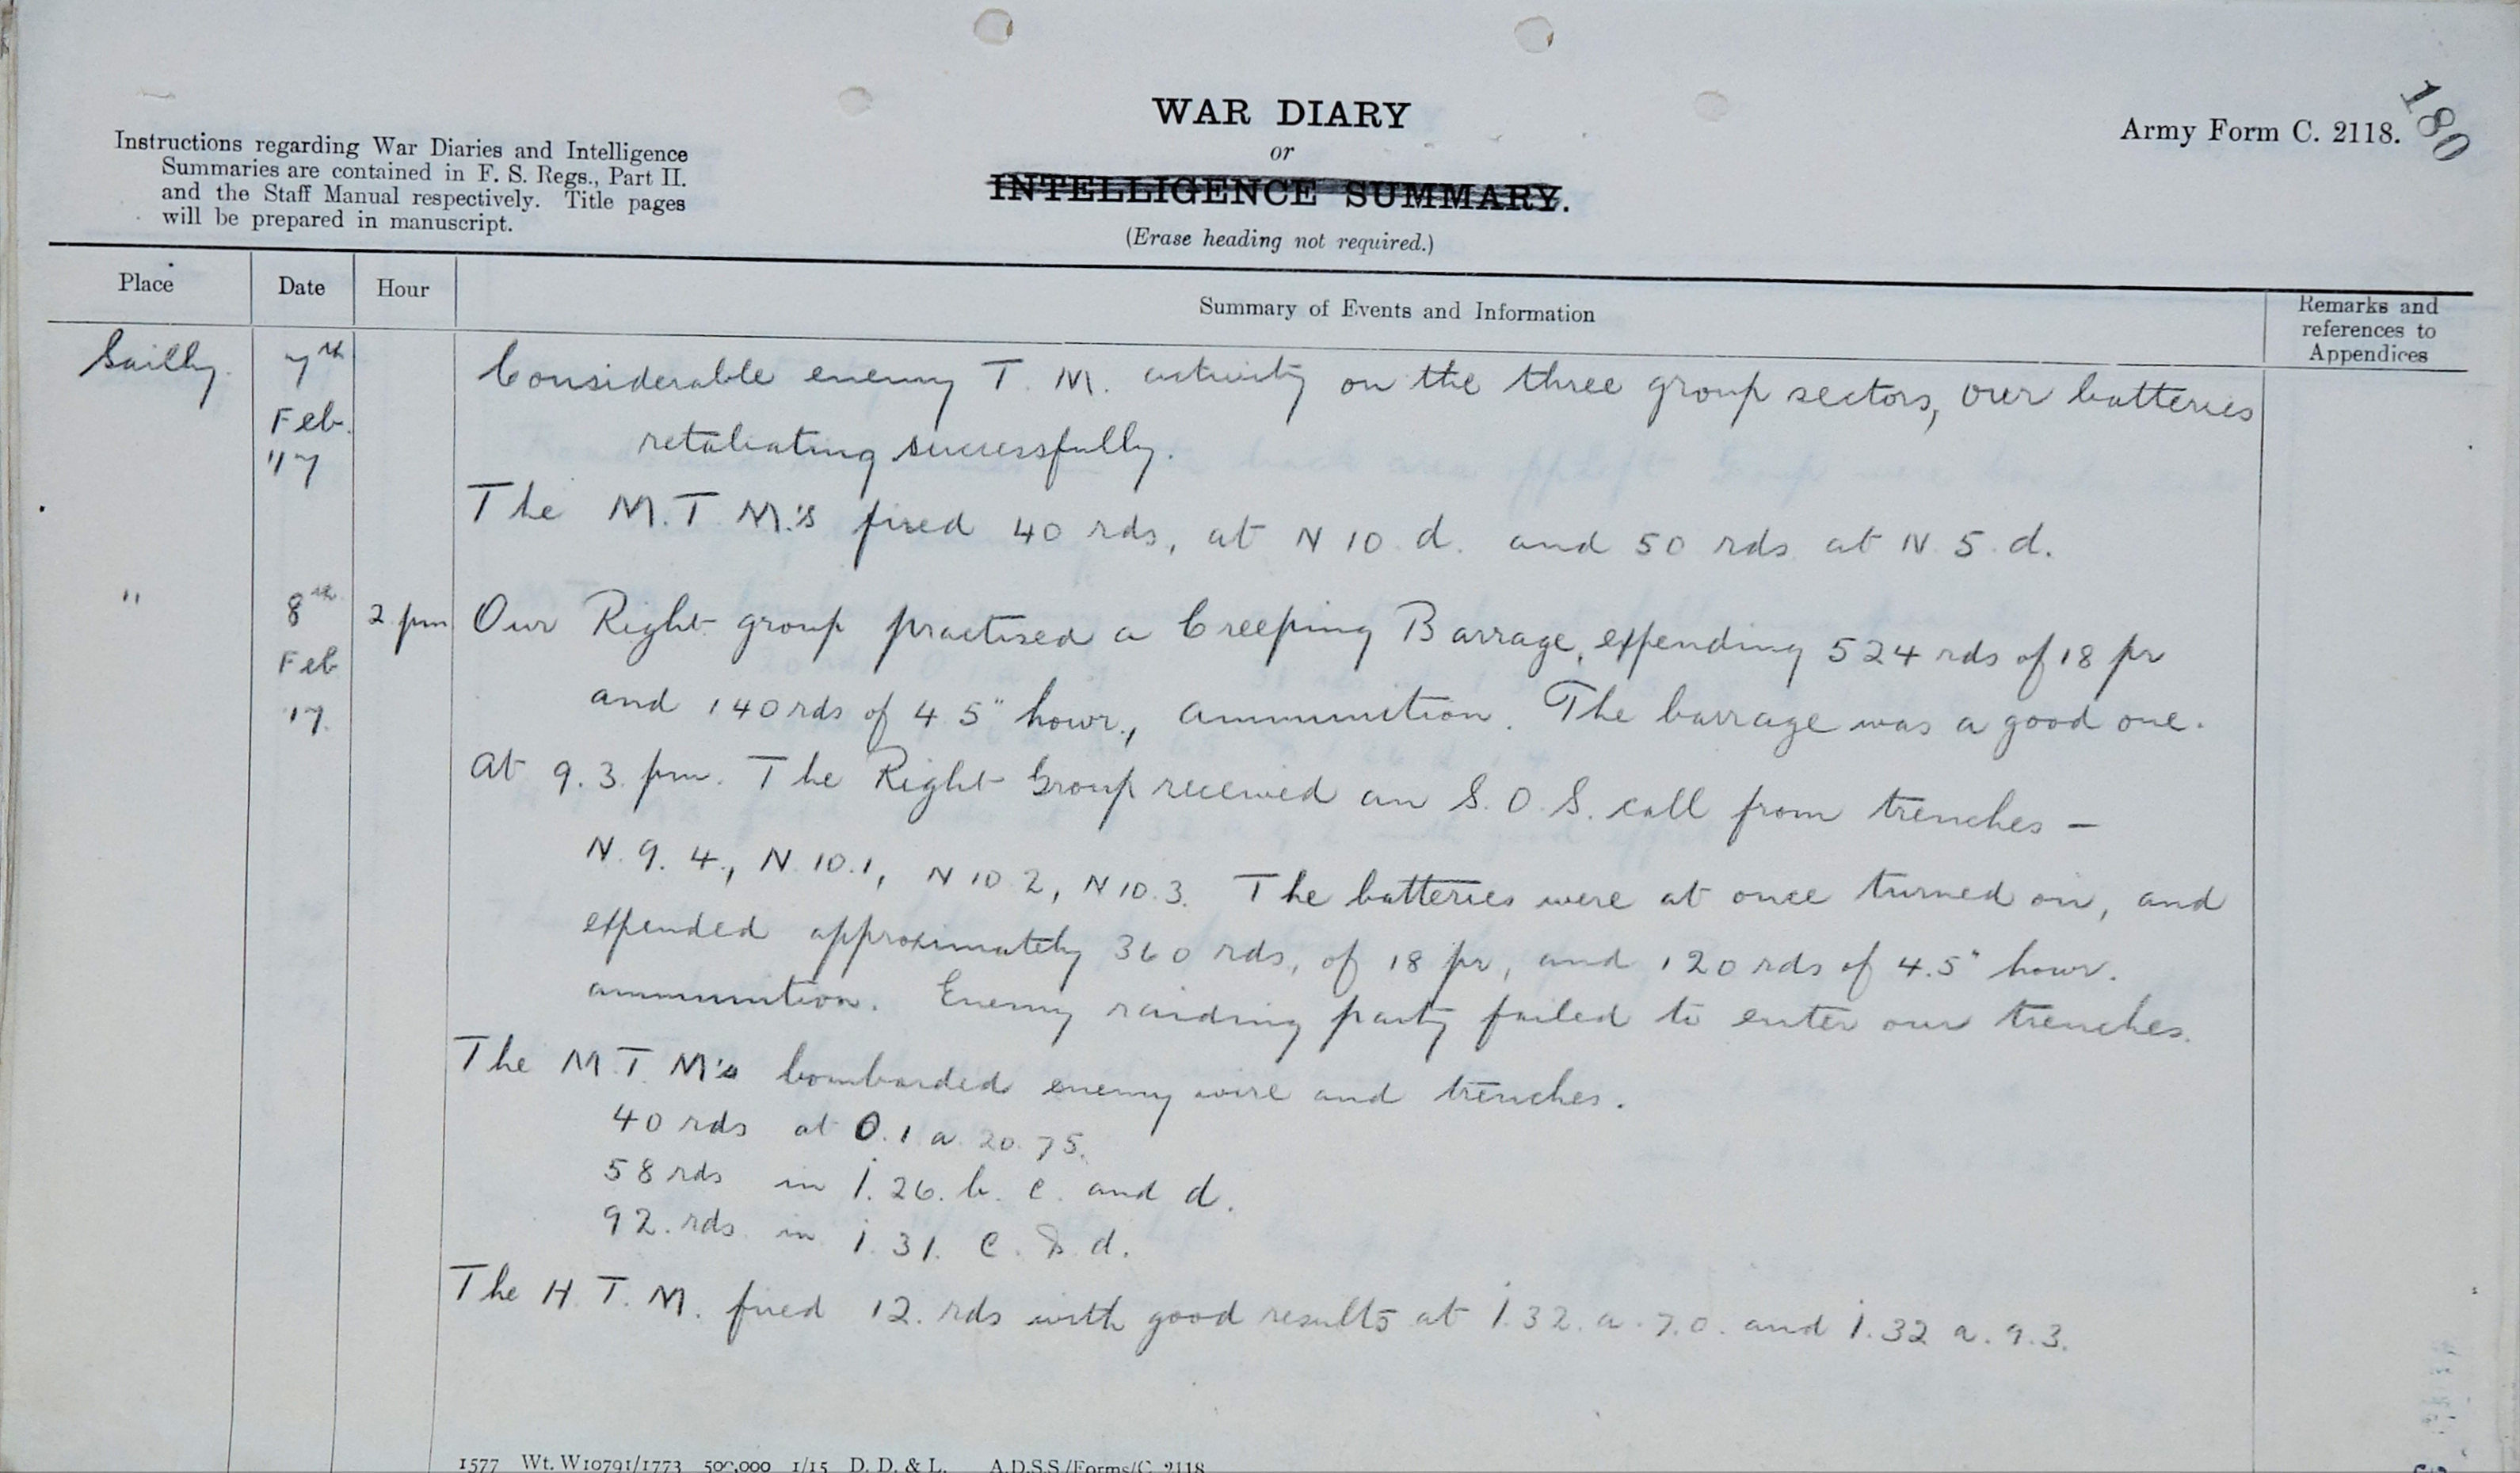 180
WAR DIARY
or
INTELLIGENCE SUMMARY.
(Erase heading not required.)
Army Form C. 2118.
Instructions regarding War Diaries and Intelligence
Summaries are contained in F. S. Regs., Part II.
and the Staff Manual respectively. Title pages
will be prepared in manuscript.
Place Date Hour Summary of Events and Information Remarks and references to Appendices
Sailly. 7th Feb. '17 Considerable enemy T. M. activity on the three group sectors, our batteries
retaliating successfully.
The M.T M.'s fired 40 rds, at N 10 d. and 50 rds at N 5 d.
" 8th Feb 17. 2 pm Our Right group practised a Creeping Barrage, expending 524 rds of 18 pr
and 140 rds of 4 5" howr., ammunition. The barrage was a good one.
At 9. 3. pm. The Right Group received an S. O. S. call from trenches —
N. 9. 4., N 10.1, N 10 2, N 10.3. The batteries were at once turned on, and
expended approximately 360 rds, of 18 pr, and 120 rds of 4.5" howr.
ammunition. Enemy raiding party failed to enter our trenches.
The M T. M's bombarded enemy wire and trenches.
40 rds at O. 1 a 20. 75.
58 rds in i. 26. b. c. and d.
92. rds in i. 31. c. & d.
The H. T. M. fired 12. rds with good results at i. 32. a. 7. 0. and i. 32 a. 9. 3.
1577 Wt. W10791/1773 500,000 1/15 D. D. & L. A.D.S.S./Forms/C. 2118